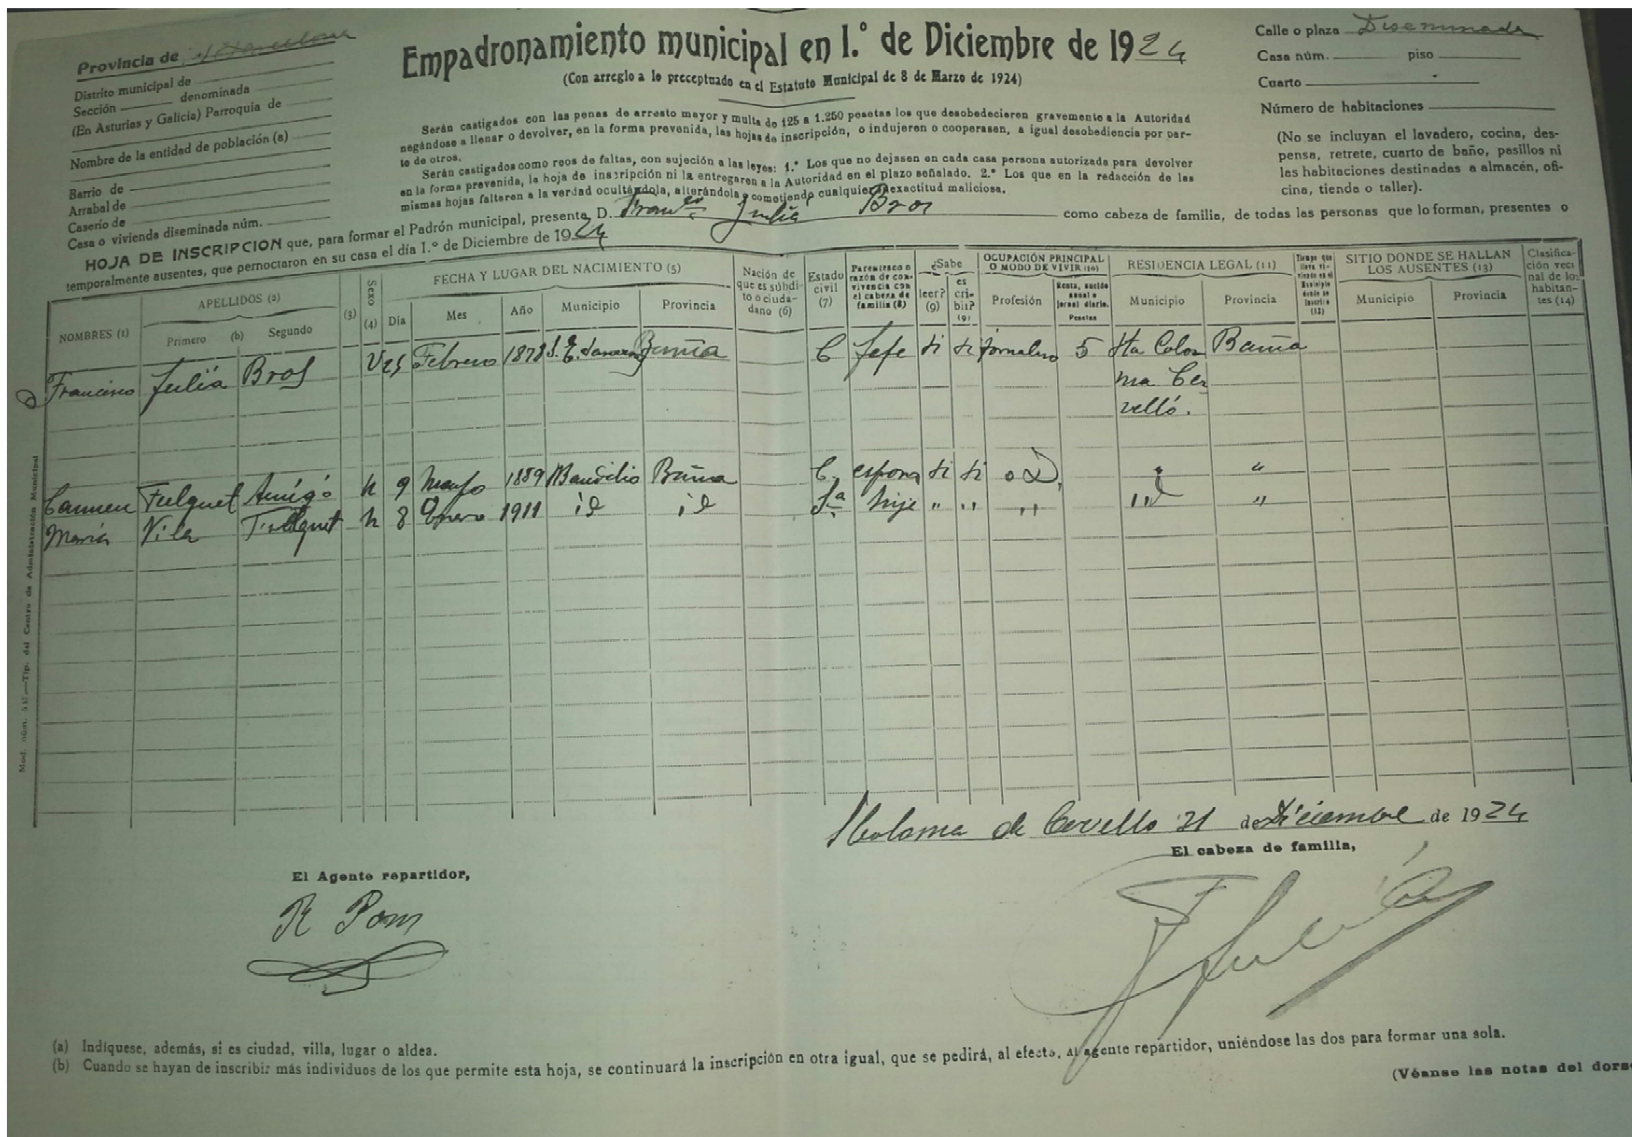 Provincia de Barcelona
Distrito municipal de
Sección denominada
(En Asturias y Galicia) Parroquia de
Nombre de la entidad de población (a)
Barrio de
Arrabal de
Caserío de
Casa o vivienda diseminada núm.
Empadronamiento municipal en 1.º de Diciembre de 1924
(Con arreglo a lo preceptuado en el Estatuto Municipal de 8 de Marzo de 1924)
Serán castigados con las penas de arresto mayor y multa de 125 a 1.250 pesetas los que desobedecieren gravemente a la Autoridad
negándose a llenar o devolver, en la forma prevenida, las hojas de inscripción, o indujeren o cooperasen, a igual desobediencia por par-
te de otros.
Serán castigados como reos de faltas, con sujeción a las leyes: 1.º Los que no dejasen en cada casa persona autorizada para devolver
en la forma prevenida, la hoja de inscripción ni la entregaren a la Autoridad en el plazo señalado. 2.º Los que en la redacción de las
mismas hojas faltaren a la verdad ocultándola, alterándola o cometiendo cualquier inexactitud maliciosa.
Calle o plaza Diseminada
Casa núm. piso
Cuarto
Número de habitaciones
(No se incluyan el lavadero, cocina, des-
pensa, retrete, cuarto de baño, pasillos ni
las habitaciones destinadas a almacén, ofi-
cina, tienda o taller).
HOJA DE INSCRIPCIÓN que, para formar el Padrón municipal, presenta D. Franco Juliá Bros como cabeza de familia, de todas las personas que lo forman, presentes o
temporalmente ausentes, que pernoctaron en su casa el día 1.º de Diciembre de 1924
NOMBRES (1) APELLIDOS (2) Primero (b) Segundo (3) Sexo (4) FECHA Y LUGAR DEL NACIMIENTO (5) Día Mes Año Municipio Provincia
Nación de que es súbdito o ciudadano (6) Estado civil (7) Parentesco o razón de convivencia con el cabeza de familia (8) ¿Sabe leer? (9) escribir? (9)
OCUPACIÓN PRINCIPAL O MODO DE VIVIR (10) Profesión Renta, sueldo anual o jornal diario. Pesetas
RESIDENCIA LEGAL (11) Municipio Provincia Tiempo que lleva viviendo en el Municipio donde se inscribe (12)
SITIO DONDE SE HALLAN LOS AUSENTES (13) Municipio Provincia Clasificación vecinal de los habitantes (14)
Francisco Juliá Bros V 25 Febrero 1878 Barña C Jefe si si jornalero 5 Sta Colo Barña
ma Cer
velló.
Carmen Fulquet Amigó h 9 Mayo 1889 Baudilio Barña C esposa si si " "
María Vila Fulquet h 8 Enero 1911 id id Sa hija " " " id "
Sta Coloma de Cervello 31 de Diciembre de 1924
El cabeza de familia,
F Juliá
El Agente repartidor,
R Pons
(a) Indíquese, además, si es ciudad, villa, lugar o aldea.
(b) Cuando se hayan de inscribir más individuos de los que permite esta hoja, se continuará la inscripción en otra igual, que se pedirá, al efecto, al agente repartidor, uniéndose las dos para formar una sola.
(Véanse las notas del dors
Mod. núm. —Tip. del Centro de Administración Municipal